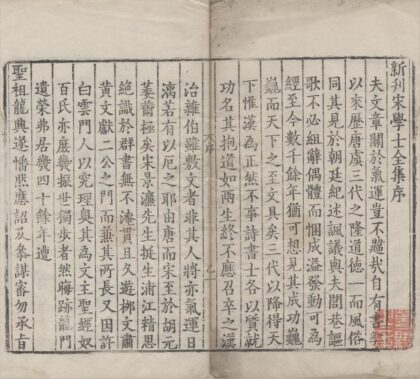 新刊宋學士全集序
夫文章關於氣運豈不哉自有書契
以來歷唐虞三代之隆道德一而風俗
同其見於朝廷紀述諷議與夫閭巷謳
歌不必組辭偶體而悃成溢發動可為
經至今數千餘年猶可想見其成功巍
巍而天下之至文具矣三代以降得天
下惟漢為正然不事詩書士各以質就
功名其抱道如兩生終不應召卒之漢
治雜伯雖數文者非其人將亦氣運日
漓若有以厄之耶由唐而宋至於胡元
萎薾極矣宋景濂先生挺生浦江精思
絕識於群書無不淹貫且久遊柳文肅
黃文獻二公之門而兼其所長又因許
白雲門人以究理奧其為文主聖經奴
百氏亦庶幾振世獨步者然晦跡龍門
遺榮弗居幾四十餘年遭
聖祖龍興遂幡然應詔及參謀審勿承旨